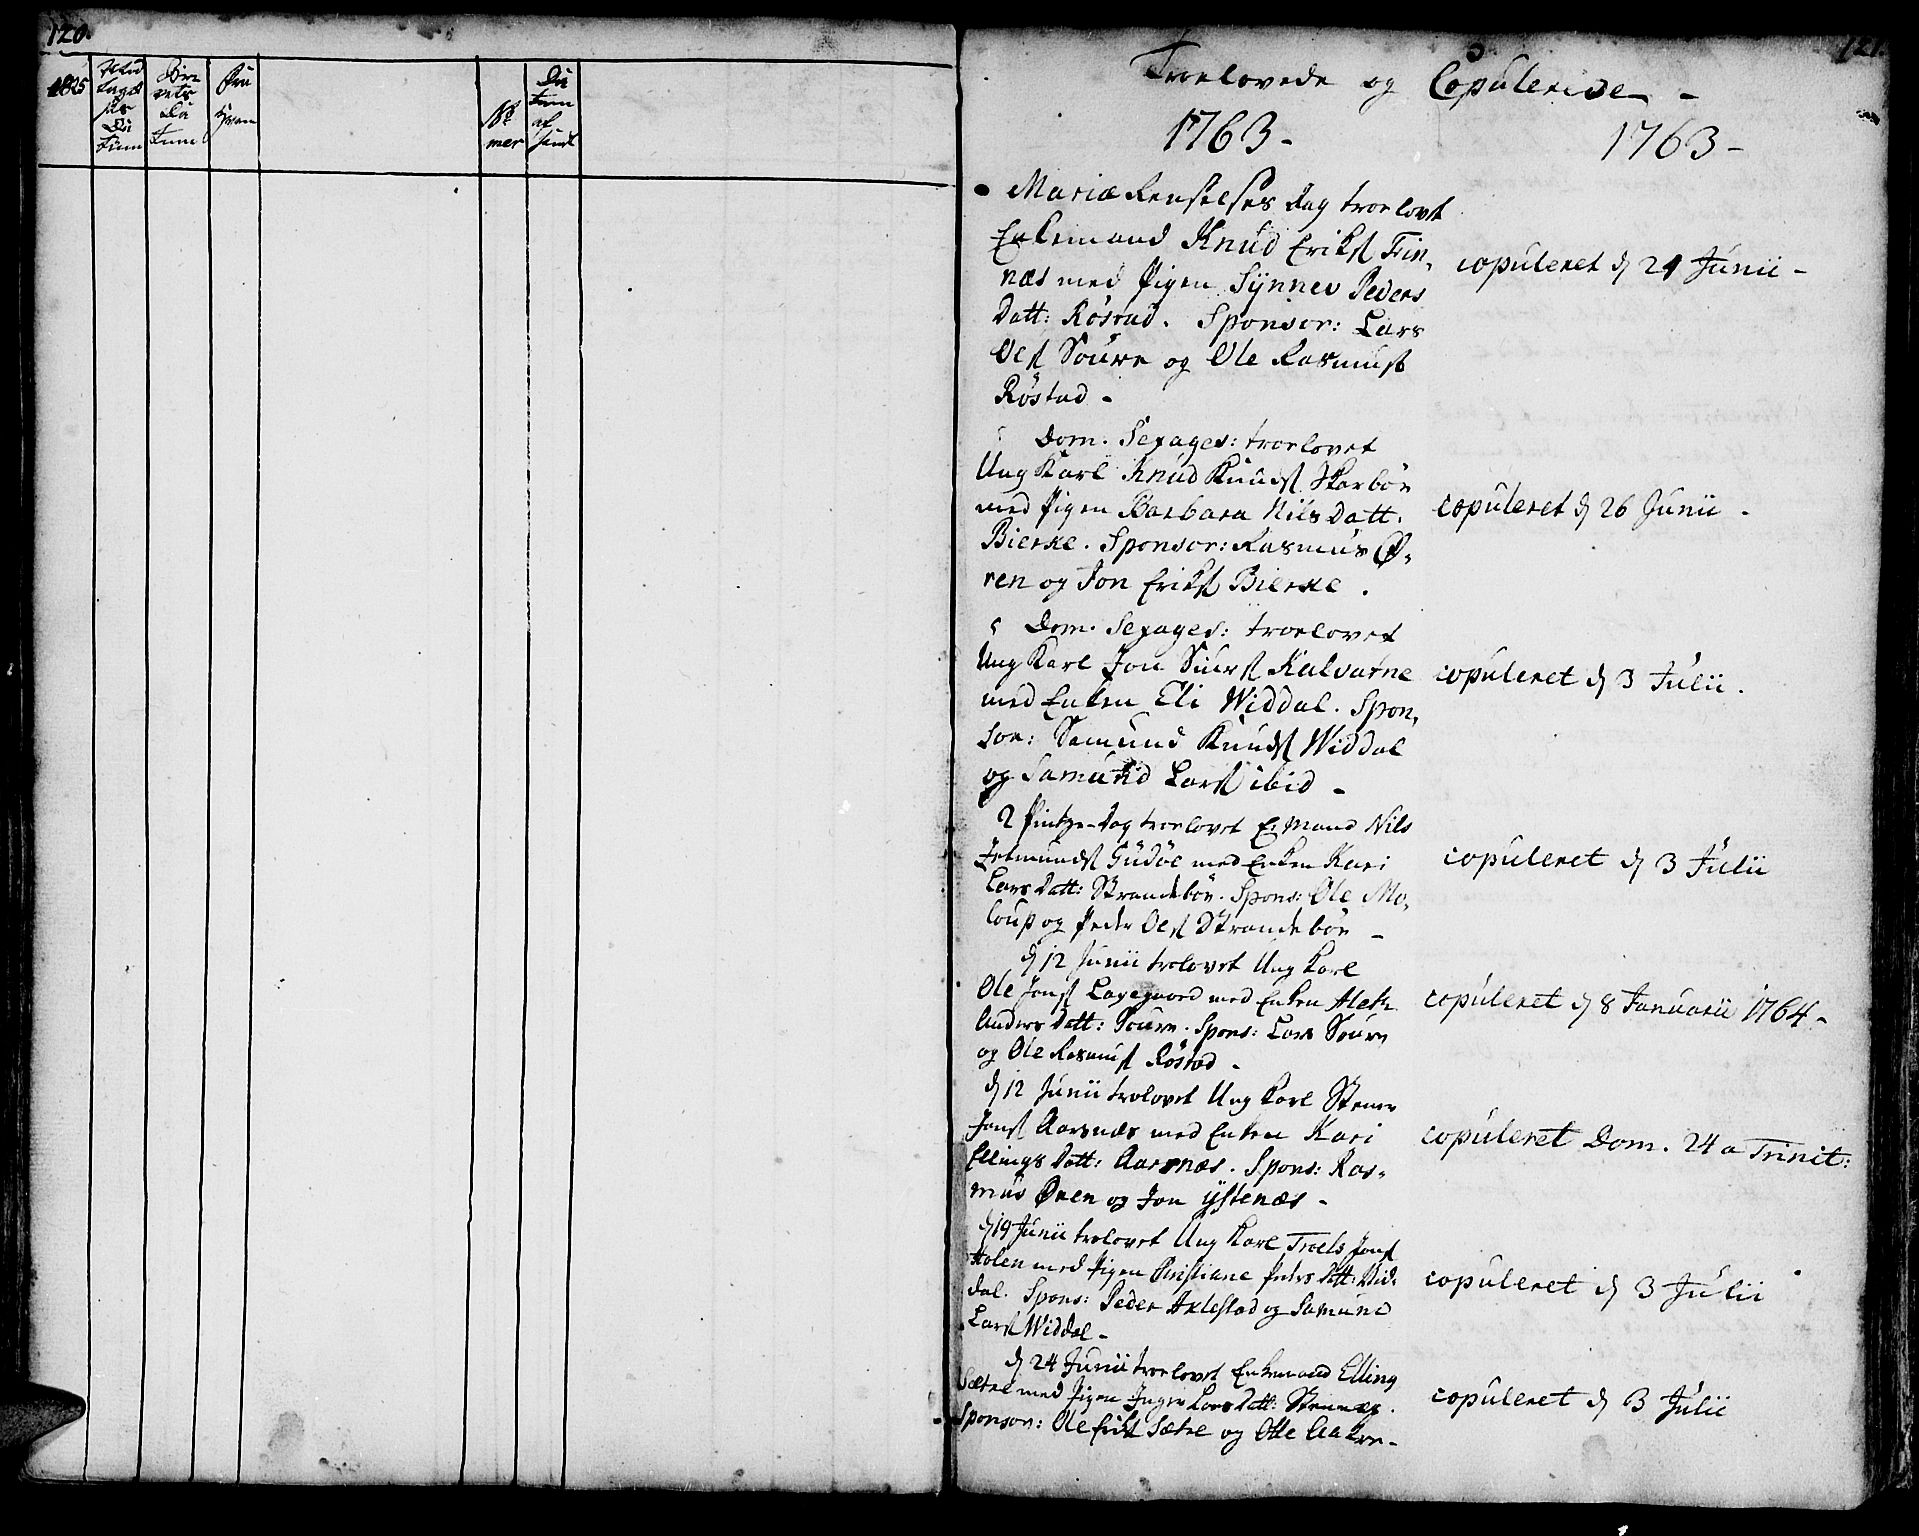 120.
1825
Datum
Bre
vets
Da
tum
Fra
hvem
No
mer
Da
tum
af
121.
Troelovede og Copulerede -
1763 - 1763 -
Mariæ Renselses Dag troelovt
Enkemand Knud Eriks. Trin-
næs med Pigen Synnev Peders
Datt: Røstad. Sponsor: Lars
Oles. Soure og Ole Rasmus.
Røstad -
copuleret d. 24 Junii -
Dom. Sexages: troelovet
Ung Karl Knud Knuds. Skarbøe
med Pigen Barbara Nils Datt:
Bierke. Sponsor: Rasmus Ø-
ren og Jon Eriks. Bierke.
copuleret d. 26 Junii -
Dom. Sexages: troelovet
Ung Karl Jon Siurs. Kalvatne
med Enken Eli Widdal. Spon-
sor: Samund Knuds. Widdal
og Samund Lars. ibid -
copuleret d. 3 Julii.
2 Pintze-Dag troelovet E: Mand Nils
Jetmunds. Gudøe med Enken Kari
Lars Datt: Strandebøe. Spons: Ole Mo-
loup og Peder Oles. Strandebøe -
copuleret d. 3 Julii
d. 12 Junii trolovet Ung Karl
Ole Jons. Lagegaard med Enken Aleth
Anders Datt: Soure. Spons: Lars Soure
og Ole Rasmus. Røstad -
copuleret d. 8 Januarii 1764 -
d. 12 Junii trolovet Ung Karl Stener
Jons. Aarsnæs med Enken Kari
Ellings Datt: Aarsnæs. Spons: Ras-
mus Øren og Jon Ystenæs -
copuleret Dom. 24 a Trinit:
d. 19 Junii trolovet Ung Karl Troels Jons.
Holen med Pigen Christiane Peders Datt: Wid-
dal. Spons: Peder Axlestad og Samund
Lars. Widdal -
copuleret d. 3 Julii
d. 24 Junii troelovet Enkemand Elling
Sætre med Pigen Inger Lars Datt: Stennæs.
Sponsor: Ole Eriks. Sætre og Otte Aakre -
copuleret d. 3 Julii